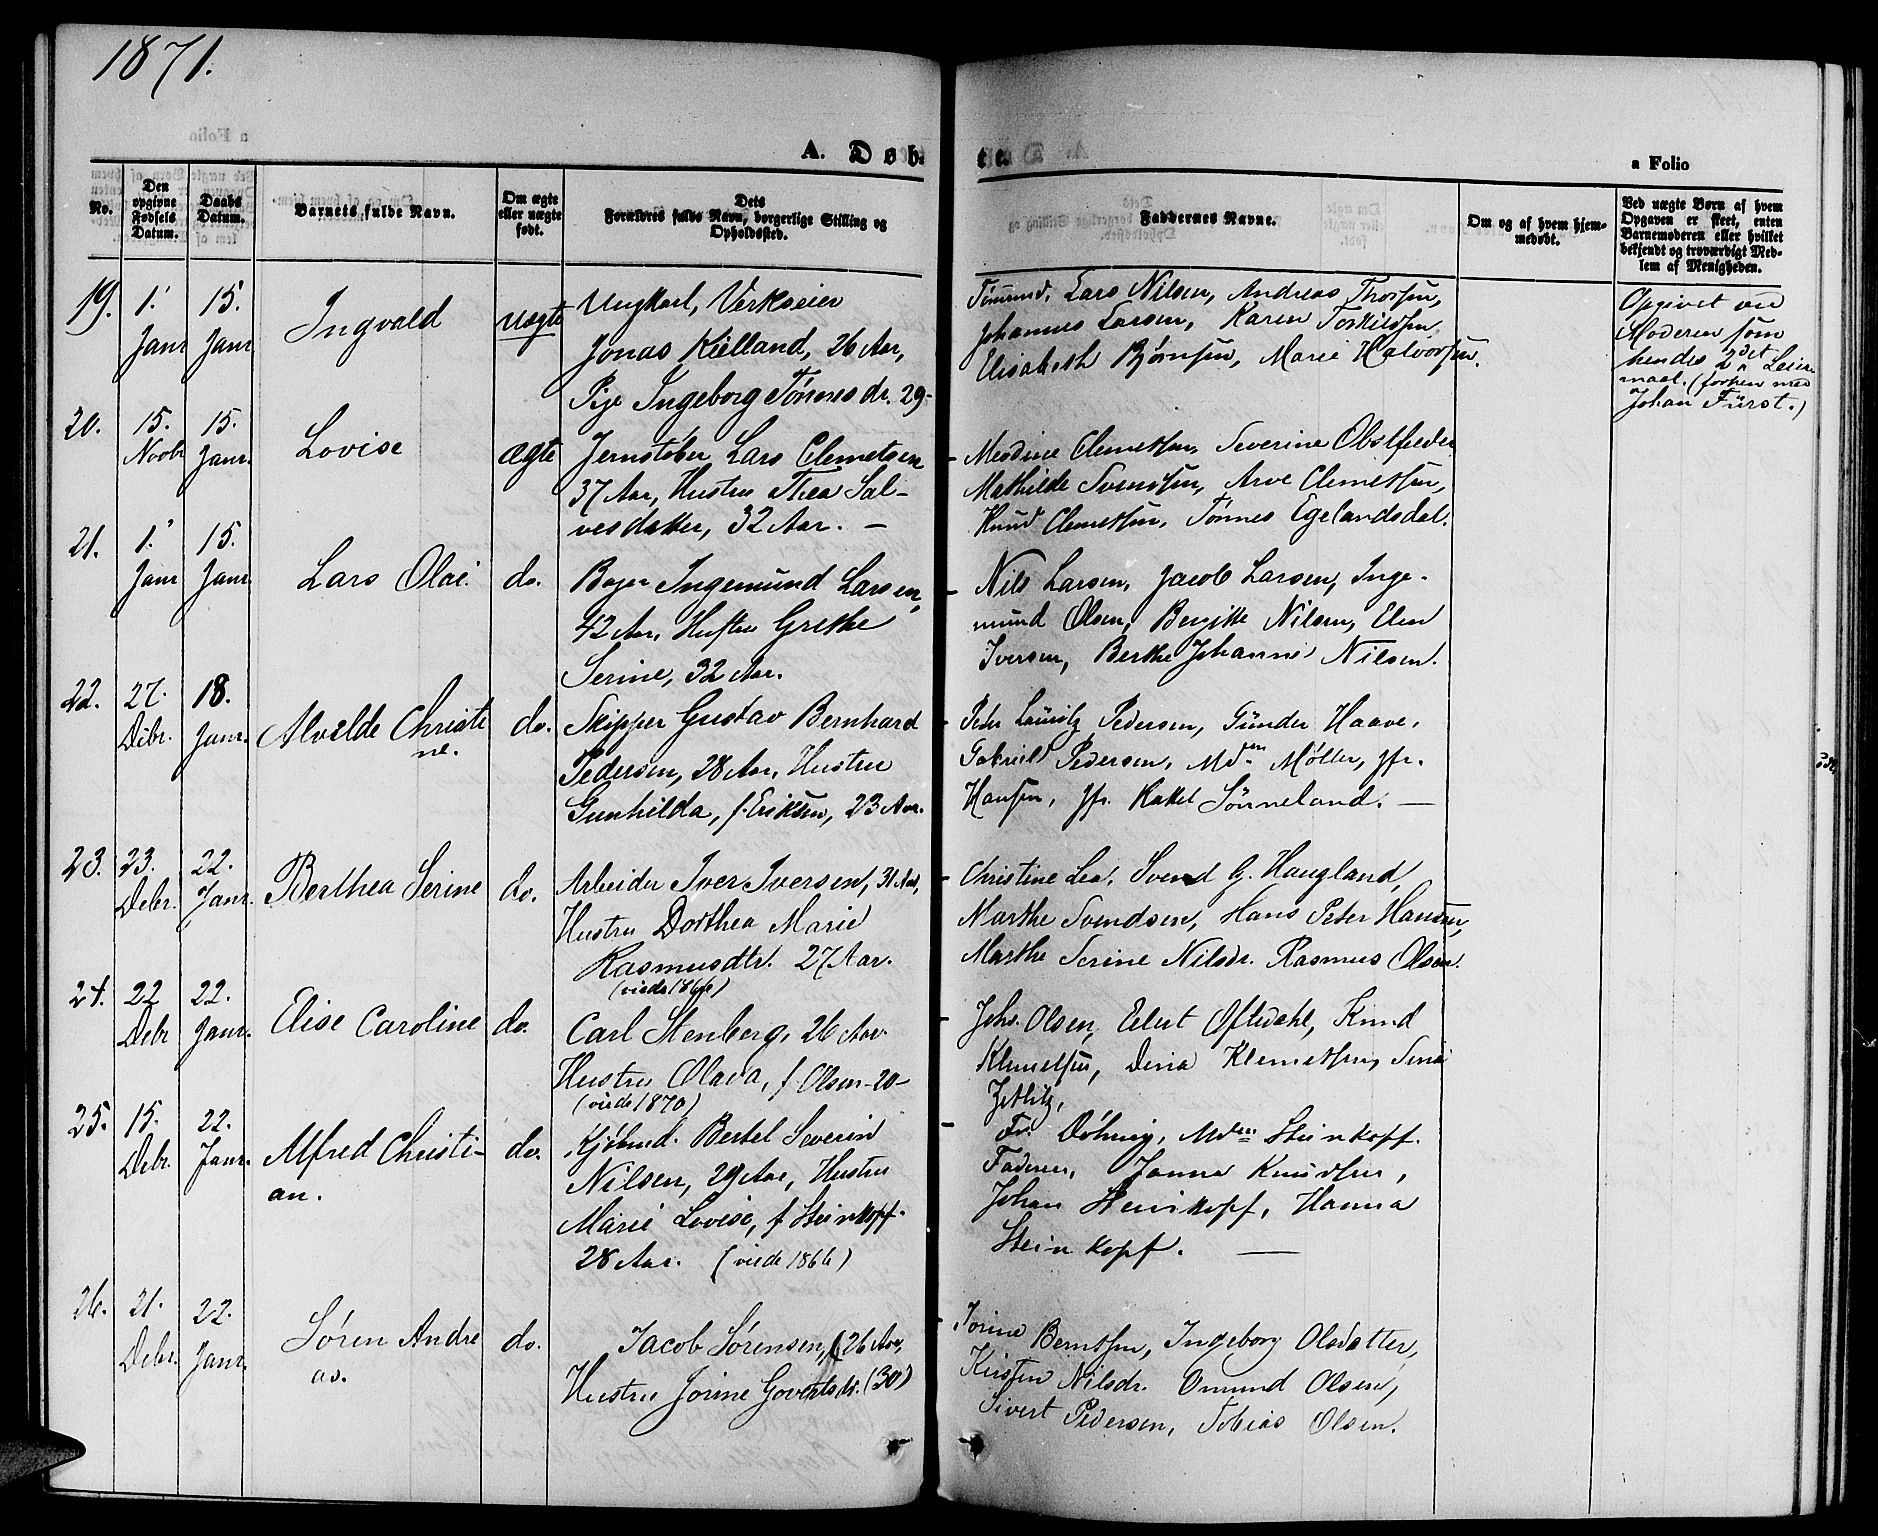 1871.
A. Døb-
te.
a Folio
No.
Den opgivne Fødsels Datum.
Daabs Datum.
Barnets fulde Navn.
Om ægte eller uægte født.
Dets Forældres fulde Navn, borgerlige Stilling og Opholdssted.
Faddernes Navne.
Om og af hvem hjemmedøbt.
Ved uægte Børn af hvem Opgaven er skeet, enten Barnemoderen eller hvilket bekjendt og troværdigt Medlem af Menigheden.
19. 1. Janr 15. Janr. Ingvald uægte
Ungkarl, Verkseier
Jonas Kielland, 26 Aar,
Pige Ingeborg Tønnesdr. 29-
Tømmd. Lars Nilsen, Andreas Thorsen,
Johannes Larsen, Karen Torkildsen,
Elisabeth Bjørnsen, Marie Halvorsen.
Opgivet av
Moderen som
hendes 2det Leier-
maal. (forhen med
Johan Fürst.)
20. 15. Novbr 15. Janr. Lovise ægte
Jernstøber Lars Clemetsen
37 Aar, Hustru Thea Sal-
vesdatter, 32 Aar. —
Clemetsen, Severine Obstfelder
Mathilde Svendsen, Arve Clemetsen,
Knud Clemetsen, Tønnes Egelandsdal.
21. 1. Janr 15. Janr. Lars Olai. do.
Bager Ingemund Larsen,
42 Aar, Hustru Grethe
Serine, 32 Aar.
Nils Larsen, Jacob Larsen, Inge-
mund Olsen, Bergitte Nilsen, Elen
Iversen, Berthe Johanne Nilsen.
22. 27. Debr. 18. Janr. Alvilde Christi
ne. do.
Skipper Gustav Bernhard
Pedersen, 28 Aar, Hustru
Gunhilda, f. Eriksen, 23 Aar.
Peder Lauritz Pedersen, Gunder Haave,
Gabriel Pedersen, Mdm Møller, Jfr.
Hansen, Jfr. Rakel Sønneland. —
23. 23. Debr. 22. Janr. Berthea Serine do.
Arbeider Iver Iversen, 31 Aar,
Hustru Dorthea Marie
Rasmusdtr. 27 Aar.
(viede 1866)
Christine Lea, Svend G. Haugland,
Marthe Svendsen, Hans Peter Hansen,
Marthe Serine Nilsdr. Rasmus Olsen.
24. 22 Debr 22. Janr. Elise Caroline do.
Carl Stenberg, 26 Aar
Hustru Olava, f Olsen -20-
(viede 1870)
Johs. Olsen, Eilert Oftedahl, Knud
Klemetsen, Dina Klemetsen, Sina
Zetlitz,
25. 15. Debr. 22. Janr. Alfred Christi-
an. do.
Kjøbmd. Bertel Severin
Nilsen, 29 Aar, Hustru
Marie Lovise, f Steinkopf
28 Aar. (viede 1866)
Fr. Døhrig, Mdm Steinkopf.
Faderen, Janna Knudsen,
Johan Steinkopf, Hanna
Steinkopf. —
26. 21. Debr. 22. Janr. Søren Andre
as. do.
Jacob Sørensen, (26 Aar,
Hustru Jorine Govertsdr. (30)
Jorine Berntsen, Ingeborg Olsdatter,
Kirsten Nilsdr. Omund Olsen,
Sivert Pedersen, Tobias Olsen.